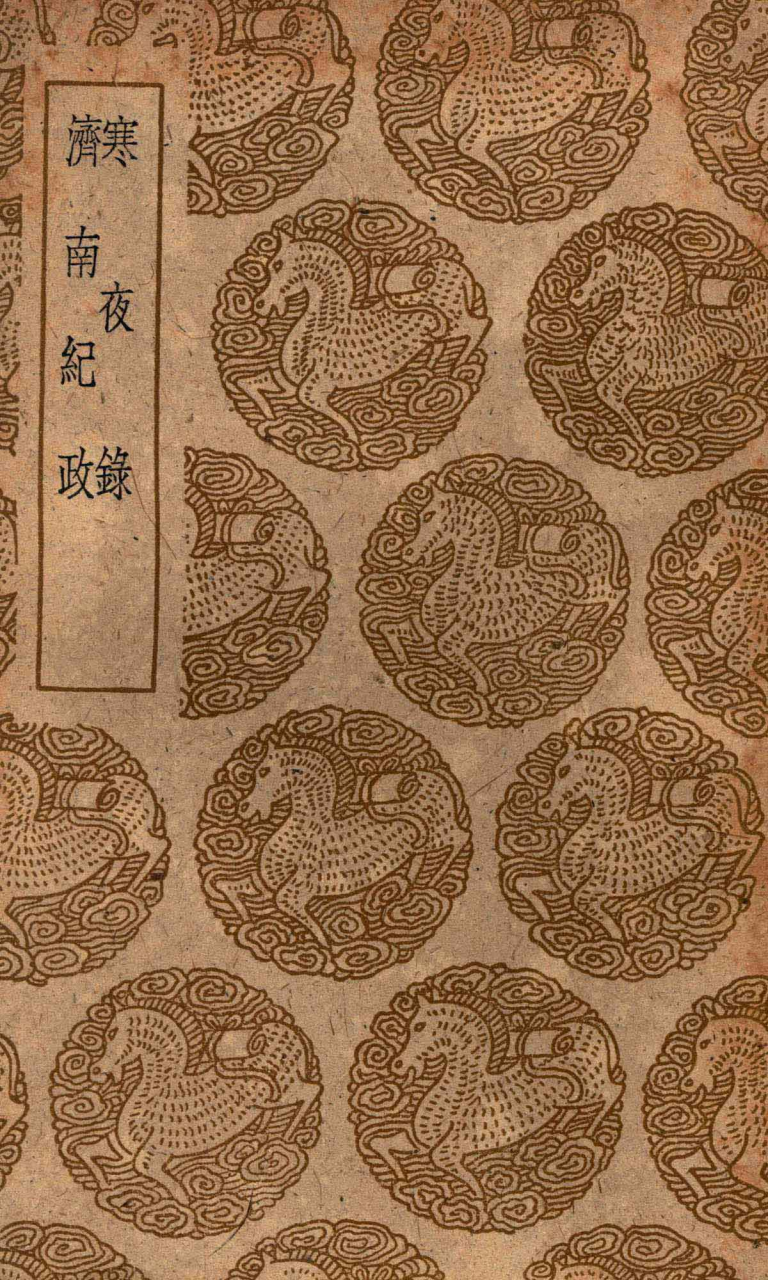 寒夜錄
濟南紀政